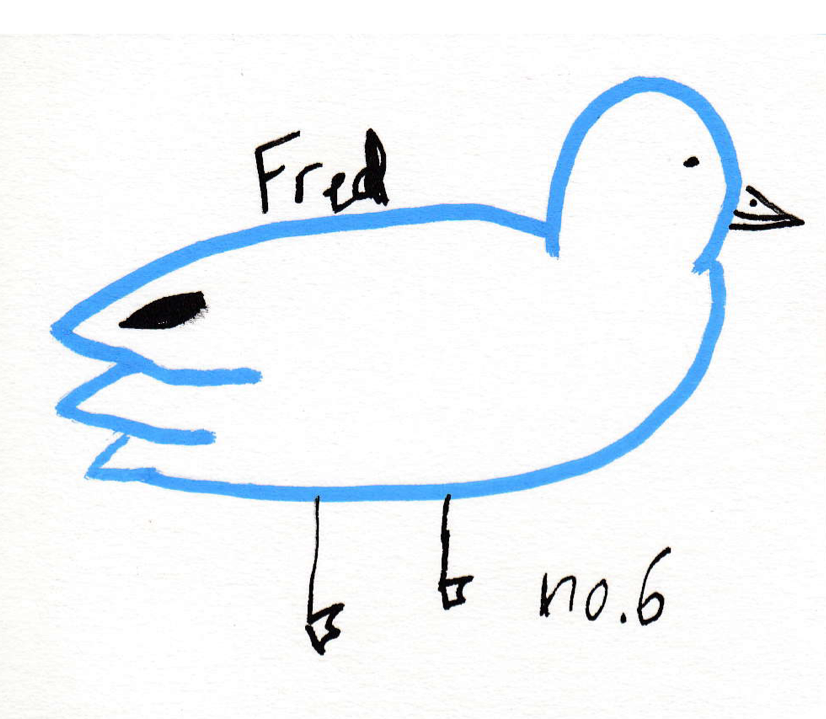 Fred
no.6